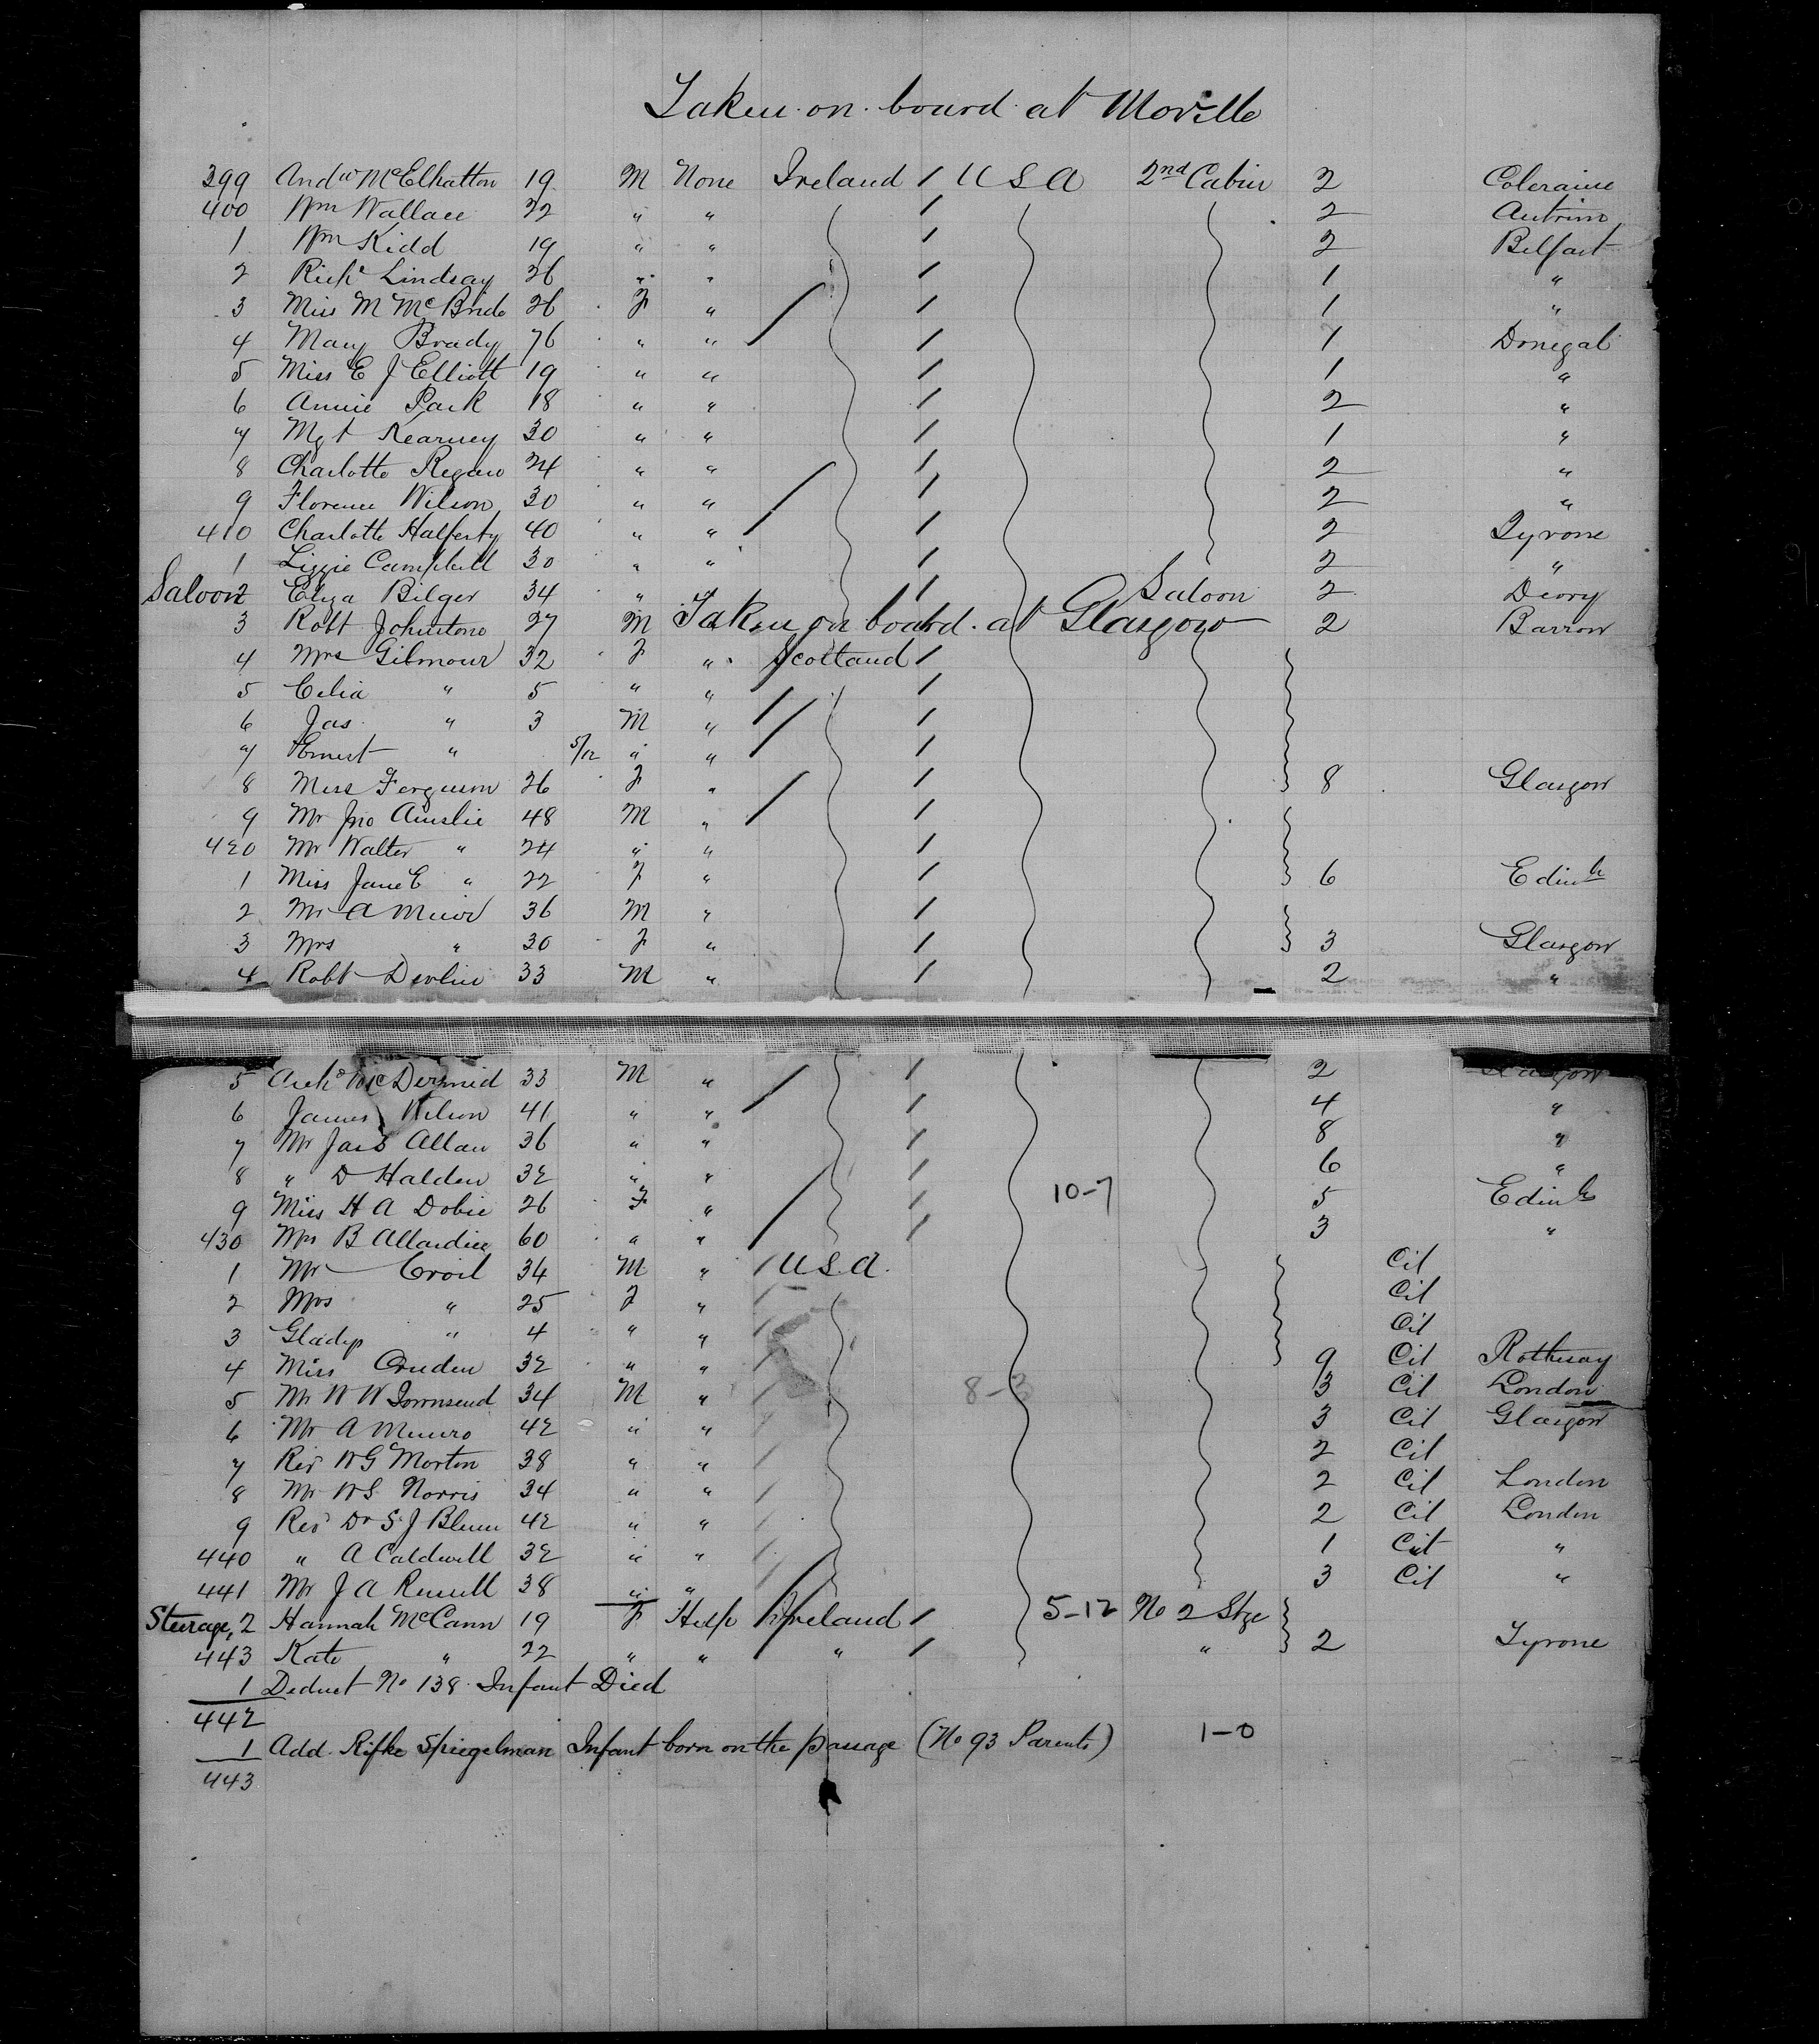 Taken on board at Moville
399 Andw McElhatton 19 M None Ireland / U S A 2nd Cabin 2 Coleraine
400 Wm Wallace 22 " " / 2 Antrim
1 Wm Kidd 19 " " / 2 Belfast
2 Richd Lindsay 26 " " / 1 "
3 Miss M McBride 26 F " / 1 "
4 Mary Brady 76 " " / 1 Donegal
5 Miss E J Elliott 19 " " / 1 "
6 Annie Park 18 " " / 2 "
7 Mgt Kearney 30 " " / 1 "
8 Charlotte Regan 24 " " / 2 "
9 Florence Wilson 30 " " / 2 "
410 Charlotte Halferty 40 " " / 2 Tyrone
1 Lizzie Campbell 30 " " / 2 "
Saloon 2 Eliza Bilger 34 " " / Saloon 2 Derry
3 Robt Johnstone 27 M Taken on board at Glasgow 2 Barrow
4 Mrs Gilmour 32 F " Scotland /
5 Celia " 5 " " /
6 Jas " 3 M " /
7 Ernest " 5/12 " " /
8 Miss Ferguson 26 F " / 8 Glasgow
9 Mr Jno Ainslie 48 M " /
420 Mr Walter " 24 " " /
1 Miss Jane E " 22 F " / 6 Edinh
2 Mr A Muir 36 M " /
3 Mrs " 30 F " / 3 Glasgow
4 Robt Devlin 33 M " / 2 "
5 Archd McDermid 33 M " / 2 Glasgow
6 James Wilson 41 " " / 4 "
7 Mr Jas Allan 36 " " / 8 "
8 " D Halden 32 " " / 6 "
9 Miss H A Dobie 26 F " / 10-7 5 Edinh
430 Mrs B Allardice 60 " " / 3 "
1 Mr Croil 34 M " / U.S.A. Cit
2 Mrs " 25 F " / Cit
3 Gladys " 4 " " / Cit
4 Miss Cruden 32 " " / 9 Cit Rothesay
5 Mr W W Townsend 34 M " / 8-3 3 Cit London
6 Mr A Munro 42 " " / 3 Cit Glasgow
7 Rev W G Morton 38 " " / 2 Cit
8 Mr W S Norris 34 " " / 2 Cit London
9 Rev Dr S J Blum 42 " " / 2 Cit London
440 " A Caldwell 32 " " / 1 Cit "
441 Mr J A Russell 38 " " / 3 Cit "
Steerage, 2 Hannah McCann 19 F Help Ireland / 5-12 No 2 Stge
443 Kate " 22 " " " / " 2 Tyrone
1 Deduct No 138 Infant Died
442
1 Add. Rifke Spiegelman Infant born on the passage (No 93 Parents) 1-0
443